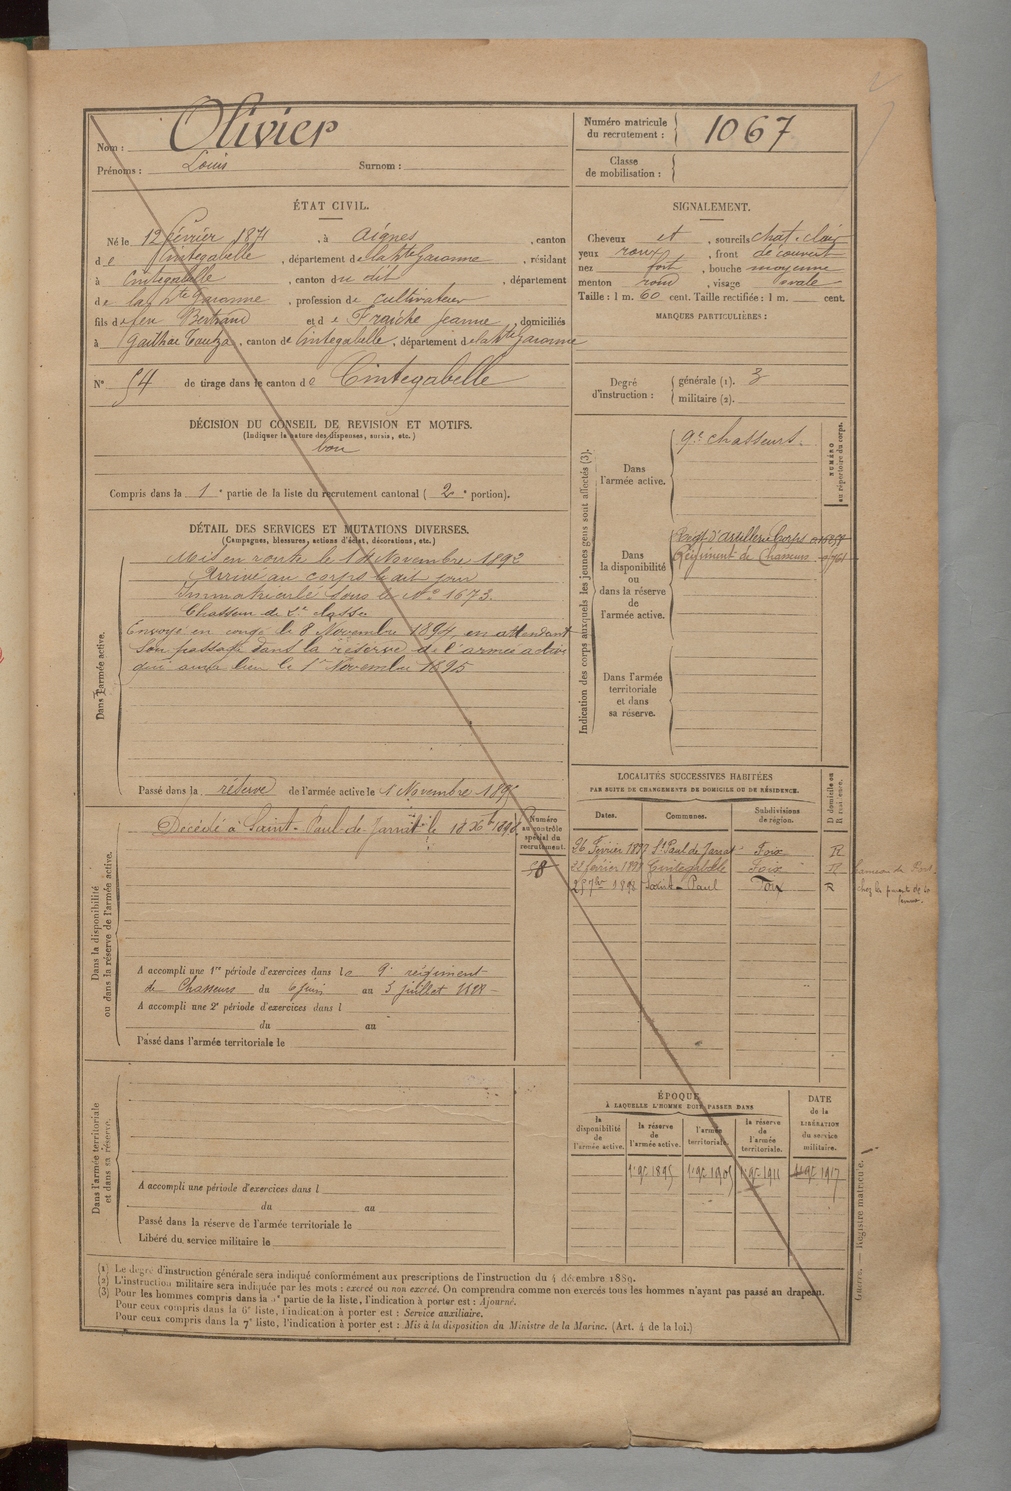 Nom : Olivier
Prénoms : Louis Surnom :
Numéro matricule du recrutement : 1067
Classe de mobilisation :
ÉTAT CIVIL.
Né le 12 février 1871, à Aignes, canton
de Cintegabelle, département de la hte Garonne, résidant
à Cintegabelle, canton du dit, département
de la hte Garonne, profession de cultivateur
fils de feu Bertrand et de Fraiche Jeanne, domiciliés
à , canton de Cintegabelle, département de la hte Garonne
N° 54 de tirage dans le canton de Cintegabelle
SIGNALEMENT.
Cheveux et, sourcils chat. clair
yeux roux, front découvert
nez fort, bouche moyenne
menton rond, visage ovale
Taille : 1 m. 60 cent. Taille rectifiée : 1 m. cent.
MARQUES PARTICULIÈRES :
Degré d'instruction : générale (1). 3
militaire (2).
DÉCISION DU CONSEIL DE REVISION ET MOTIFS.
(Indiquer la nature des dispenses, sursis, etc.)
bon
Compris dans la 1e partie de la liste du recrutement cantonal (2e portion).
DÉTAIL DES SERVICES ET MUTATIONS DIVERSES.
(Campagnes, blessures, actions d'éclat, décorations, etc.)
Dans l'armée active.
Mis en route le 14 Novembre 1892
Arrivé au corps le dit jour
Immatriculé sous le N° 1673.
Chasseur de 2e classe
Envoyé en congé le 8 Novembre 1894, en attendant
son passage dans la réserve de l'armée active
qui aura lieu le 1er Novembre 1895
Passé dans la réserve de l'armée active le 1 Novembre 1895
Indication des corps auxquels les jeunes gens sont affectés (3).
NUMÉRO au répertoire du corps.
Dans l'armée active.
9e chasseurs.
Dans la disponibilité ou dans la réserve de l'armée active.
Régt d'artillerie Corps
Régiment de Chasseurs
Dans l'armée territoriale et dans sa réserve.
Dans la disponibilité ou dans la réserve de l'armée active.
Décédé à Saint-Paul-de-Jarrat le 18 Xbre 1898
Numéro au contrôle spécial du recrutement.
58
A accompli une 1re période d'exercices dans le 9e régiment
de Chasseurs du 6 juin au 3 juillet 1898
A accompli une 2e période d'exercices dans l
du au
Passé dans l'armée territoriale le
LOCALITÉS SUCCESSIVES HABITÉES
PAR SUITE DE CHANGEMENTS DE DOMICILE OU DE RÉSIDENCE.
Dates. Communes. Subdivisions de région. D domicile ou R résidence.
26 Février 1897 St Paul de Jarrat Foix R
22 février 1898 Cintegabelle Foix R
25 7bre 1898 Saint-Paul Foix R
chez les parents de sa femme.
Dans l'armée territoriale et dans sa réserve.
A accompli une période d'exercices dans l
du au
Passé dans la réserve de l'armée territoriale le
Libéré du service militaire le
ÉPOQUE
À LAQUELLE L'HOMME DOIT PASSER DANS
la disponibilité de l'armée active. la réserve de l'armée active. l'armée territoriale. la réserve de l'armée territoriale.
DATE de la LIBÉRATION du service militaire.
1 9bre 1895 1 9bre 1905 1 9bre 1911 1 9bre 1917
(1) Le degré d'instruction générale sera indiqué conformément aux prescriptions de l'instruction du 4 décembre 1889.
(2) L'instruction militaire sera indiquée par les mots : exercé ou non exercé. On comprendra comme non exercés tous les hommes n'ayant pas passé au drapeau.
(3) Pour les hommes compris dans la 5e partie de la liste, l'indication à porter est : Ajourné.
Pour ceux compris dans la 6e liste, l'indication à porter est : Service auxiliaire.
Pour ceux compris dans la 7e liste, l'indication à porter est : Mis à la disposition du Ministre de la Marine. (Art. 4 de la loi.)
Guerre. — Registre matricule.